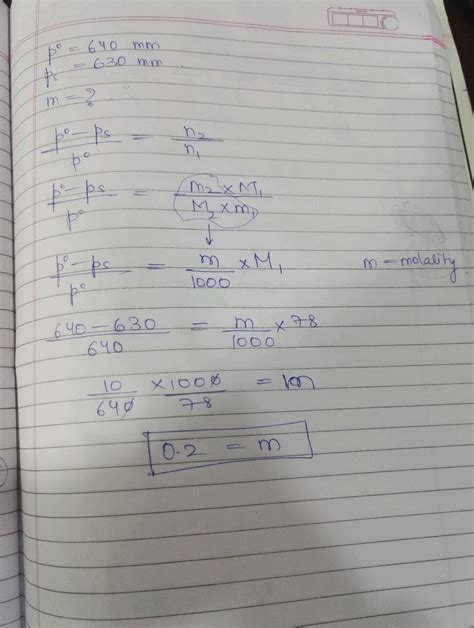 p° = 640 mm
ps = 630 mm.
m = ?
p° - ps / p° = n2 / n1
p° - ps / p° = m2 × M1 / M2 × m1
↓
p° - ps / p° = m / 1000 × M1 m = molality
640 - 630 / 640 = m / 1000 × 78
10 / 640 × 1000 / 78 = m
0.2 = m